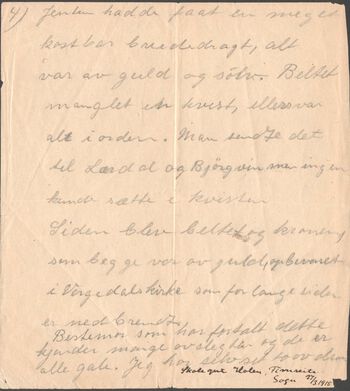 4) Jenten hadde faat en meget
kostbar brudedragt, alt
var av guld og sölv. Beltet
manglet en kvist, ellers var
alt i orden. Man sendte det
til Lærdal og Björgvin men ingen
kunde sætte i kvisten
Siden blev beltet og kronen,
som begge var av guld, opbevaret
i Vergedalskirke som for lange siden
er nedbrendt.
Bestemor som har fortalt dette
kjender mange av slegten og de er
alle gale. Jeg har selv set to av dem
Skolegut Holen Timreite
Sogn 17/3 1915